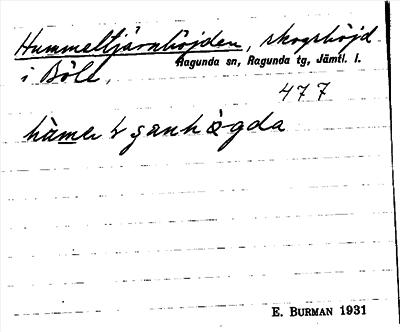 Hummeltjärnhöjden, skogshöjd
Ragunda sn, Ragunda tg, Jämtl. l.
i Böle,
477
E. BURMAN 1931